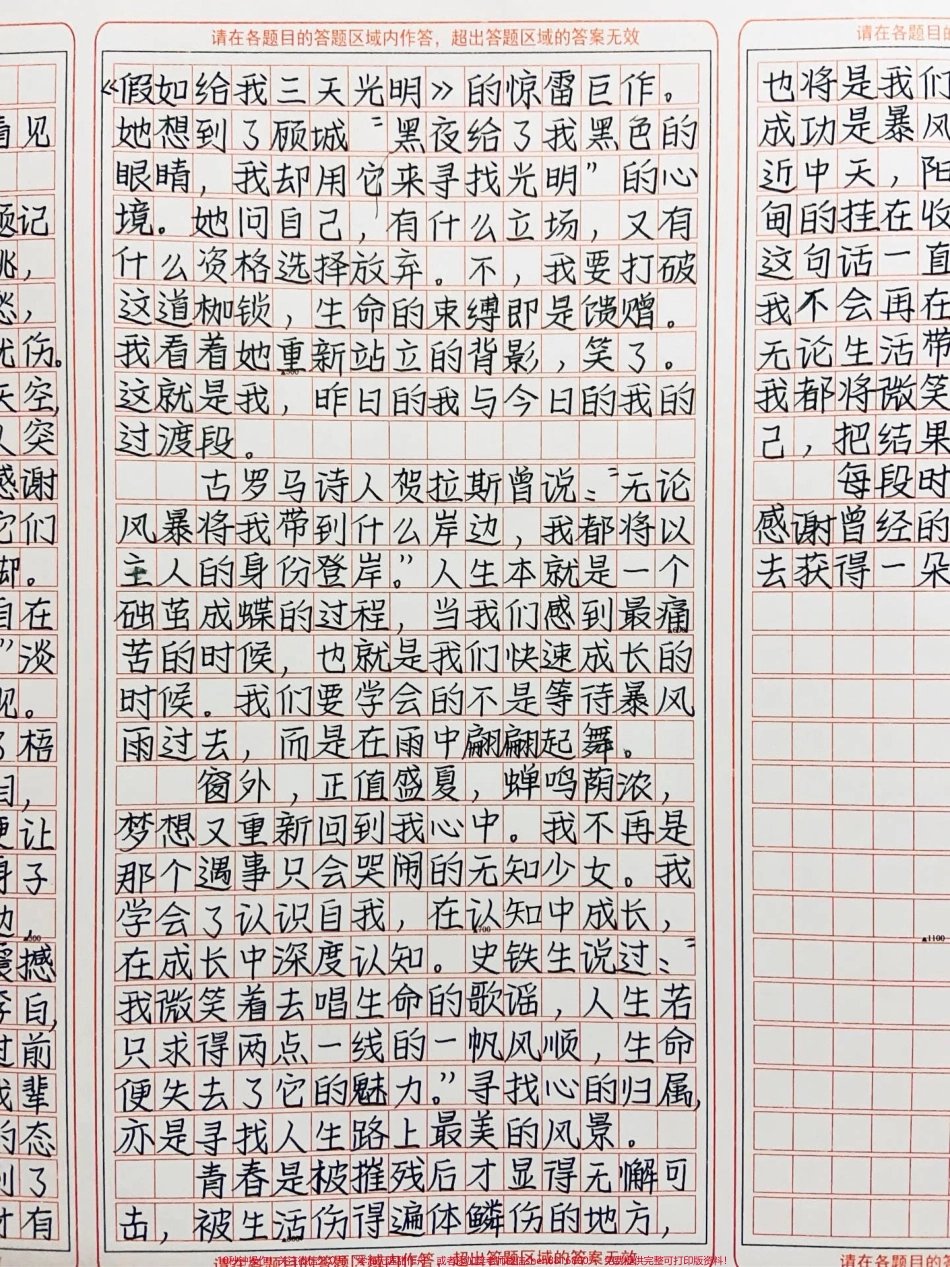 请在各题目的答题区域内作答，超出答题区域的答案无效
《假如给我三天光明》的惊雷巨作。
她想到了顾城“黑夜给了我黑色的
眼睛，我却用它来寻找光明”的心
境。她问自己，有什么立场，又有
什么资格选择放弃。不，我要打破
这道枷锁，生命的束缚即是馈赠。
我看着她重新站立的背影，笑了。
这就是我，昨日的我与今日的我的
过渡段。
古罗马诗人贺拉斯曾说：“无论
风暴将我带到什么岸边，我都将以
主人的身份登岸。”人生本就是一个
础茧成蝶的过程，当我们感到最痛
苦的时候，也就是我们快速成长的
时候。我们要学会的不是等待暴风
雨过去，而是在雨中翩翩起舞。
窗外，正值盛夏，蝉鸣荫浓，
梦想又重新回到我心中。我不再是
那个遇事只会哭闹的无知少女。我
学会了认识自我，在认知中成长，
▲700
在成长中深度认知。史铁生说过：“
我微笑着去唱生命的歌谣，人生若
只求得两点一线的一帆风顺，生命
便失去了它的魅力。”寻找心的归属，
亦是寻找人生路上最美的风景。
青春是被摧残后才显得无懈可
击，被生活伤得遍体鳞伤的地方，
请在各题目的
也将是我们
成功是暴风
近中天，阳
甸的挂在收
这句话一直
我不会再在
无论生活带
我都将微笑
己，把结果
每段时
感谢曾经的
去获得一朵
▲1100
看见
题记
兆，
愁，
忧伤。
天空，
人突
感谢
它们
却。
自在
”淡
见。
了梧
目，
便让
身子
边，
震撼
李自，
过前
我辈
的态
到了
才有
超出答题区域的答案无效
请在各题目的